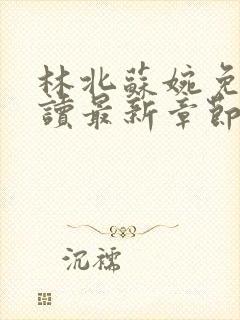 林北蘇婉免
讀最新章節
沉襦